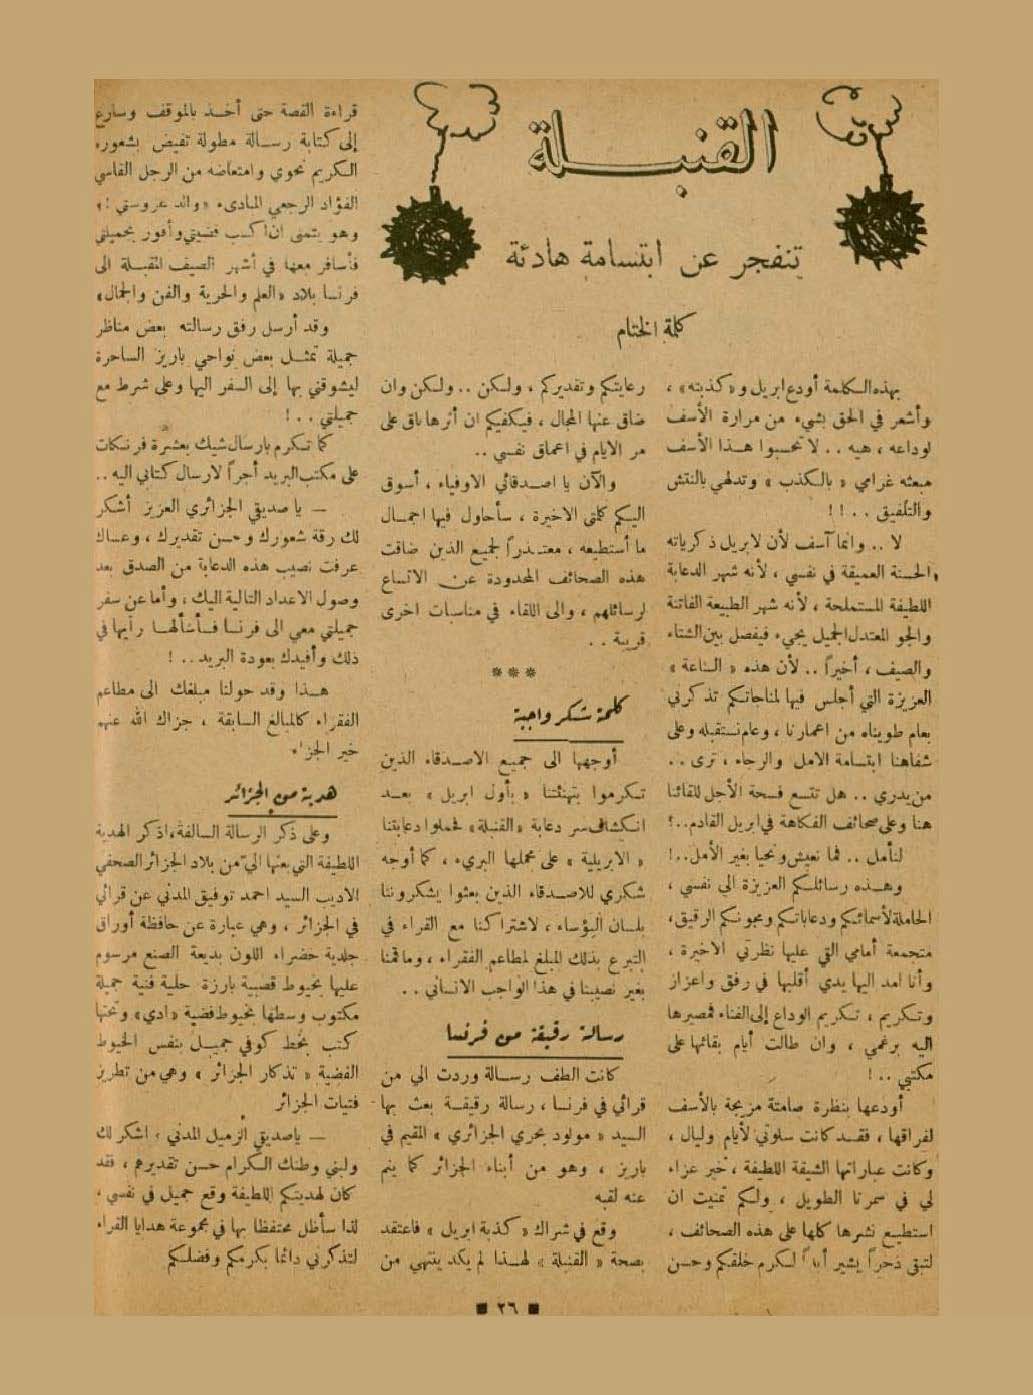 القنبلة
تنفجر عن ابتسامة هادئة
كلمة الختام
بهذه الكلمة أودع ابريل و«كذبته» ،
وأشعر في الحق بشيء من مرارة الأسف
لوداعه ، هيه .. لا تحسبوا هذا الأسف
مبعثه غرامي « بالكذب » وتدلهي بالنتش
والتلفيق ..!!
لا .. وانما آسف لأن لابريل ذكرياته
الحسنة العميقة في نفسي ، لأنه شهر الدعابة
اللطيفة المستملحة ، لأنه شهر الطبيعة الفاتنة
والجو المعتدل الجميل يجيء فيفصل بين الشتاء
والصيف ، أخيراً .. لأن هذه « الساعة »
العزيزة التي أجلس فيها لمناجاتكم تذكرني
بعام طويناه من اعمارنا ، وعام نستقبله وعلى
شفاهنا ابتسامة الامل والرجاء ، ترى ..
من يدري .. هل تتسع فسحة الأجل للقائنا
هنا وعلى صحائف الفكاهة في ابريل القادم..؟
لنأمل .. فما نعيش ونحيا بغير الأمل..!
وهذه رسائلكم العزيزة الى نفسي ،
الحاملة لأسمائكم ودعاباتكم ومجونكم الرقيق،
متجمعة أمامي التي عليها نظرتي الاخيرة ،
وأنا امد اليها يدي أقلبها في رفق واعزاز
وتكريم ، تكريم الوداع إلى الفناء فمصيرها
اليه برغمي ، وان طالت أيام بقائها على
مكتبي ..!
أودعها بنظرة صامتة مزيجة بالأسف
لفراقها ، فقد كانت سلوتي لأيام وليال ،
وكانت عباراتها الشيقة اللطيفة ، خير عزاء
لي في سمرنا الطويل ، ولكم تمنيت ان
استطيع نشرها كلها على هذه الصحائف ،
لتبقى ذخراً يشير أبداً لكرم خلقكم وحسن
رعايتكم وتقديركم ، ولكن .. ولكن وان
ضاق عنها المجال ، فيكفيكم ان أثرها باق على
مر الايام في اعماق نفسي ..
والآن يا اصدقائي الاوفياء ، أسوق
اليكم كلمتي الاخيرة ، سأحاول فيها اجمال
ما أستطيعه ، معتذراً لجميع الذين ضاقت
هذه الصحائف المحدودة عن الاتساع
لرسائلهم ، والى اللقاء في مناسبات اخرى
قريبة ..
***
كلمة شكر واجبة
أوجهها الى جميع الاصدقاء الذين
تكرموا بتهنئتنا « بأول ابريل » بعد
انكشاف سر دعابة «القنبلة» فحملوا دعابتنا
« الابريلية » على محملها البريء ، كما أوجه
شكري للاصدقاء الذين بعثوا يشكروننا
بلسان البؤساء ، لاشتراكنا مع القراء في
التبرع بذلك المبلغ لمطاعم الفقراء ، وما قمنا
بغير نصيبنا في هذا الواجب الانساني ..
رسالة رقيقة من فرنسا
كانت الطف رسالة وردت الي من
قرائي في فرنسا ، رسالة رقيقة بعث بها
السيد « مولود بحري الجزائري » المقيم في
باريز ، وهو من أبناء الجزائر كما ينم
عنه لقبه
وقع في شراك « كذبة ابريل » فاعتقد
بصحة « القنبلة » لهذا لم يكد ينتهي من
قراءة القصة حتى أخذ بالموقف وسارع
إلى كتابة رسالة مطولة تفيض بشعوره
الكريم نحوي وامتعاضه من الرجل القاسي
الفؤاد الرجعي المبادىء «والد عروستي !»
وهو يتمنى ان اكسب قضيتي وأفوز بجميلتي
فأسافر معها في أشهر الصيف المقبلة الى
فرنسا بلاد «العلم والحرية والفن والجمال»
وقد أرسل رفق رسالته بعض مناظر
جميلة تمثل بعض نواحي باريز الساحرة
ليشوقني بها إلى السفر اليها وعلى شرط مع
جميلتي ..!
كما تكرم بارسال شيك بعشرة فرنكات
على مكتب البريد أجراً لارسال كتابي اليه ..
— يا صديقي الجزائري العزيز أشكر
لك رقة شعورك وحسن تقديرك ، وعساك
عرفت نصيب هذه الدعابة من الصدق بعد
وصول الاعداد التالية اليك ، وأما عن سفر
جميلتي معي الى فرنسا فسأسألها رأيها في
ذلك وأفيدك بعودة البريد..!
هذا وقد حولنا مبلغك الى مطاعم
الفقراء كالمبالغ السابقة ، جزاك الله عنهم
خير الجزاء
هدية من الجزائر
وعلى ذكر الرسالة السالفة، اذكر الهدية
اللطيفة التي بعثها الي من بلاد الجزائر الصحفي
الاديب السيد احمد توفيق المدني عن قرائي
في الجزائر ، وهي عبارة عن حافظة أوراق
جلدية خضراء اللون بديعة الصنع مرسوم
عليها بخيوط قصبية بارزة حلية فنية جميلة
مكتوب وسطها بخيوط فضية «ادي» وتحتها
كتب بخط كوفي جميل بنفس الخيوط
الفضية « تذكار الجزائر » وهي من تطريز
فتيات الجزائر
— يا صديقي الزميل المدني ، اشكر لك
ولبني وطنك الكرام حسن تقديرهم ، فقد
كان لهديتكم اللطيفة وقع جميل في نفسي ،
لذا سأظل محتفظا بها في مجموعة هدايا القراء
لتذكرني دائما بكرمكم وفضلكم
٢٦